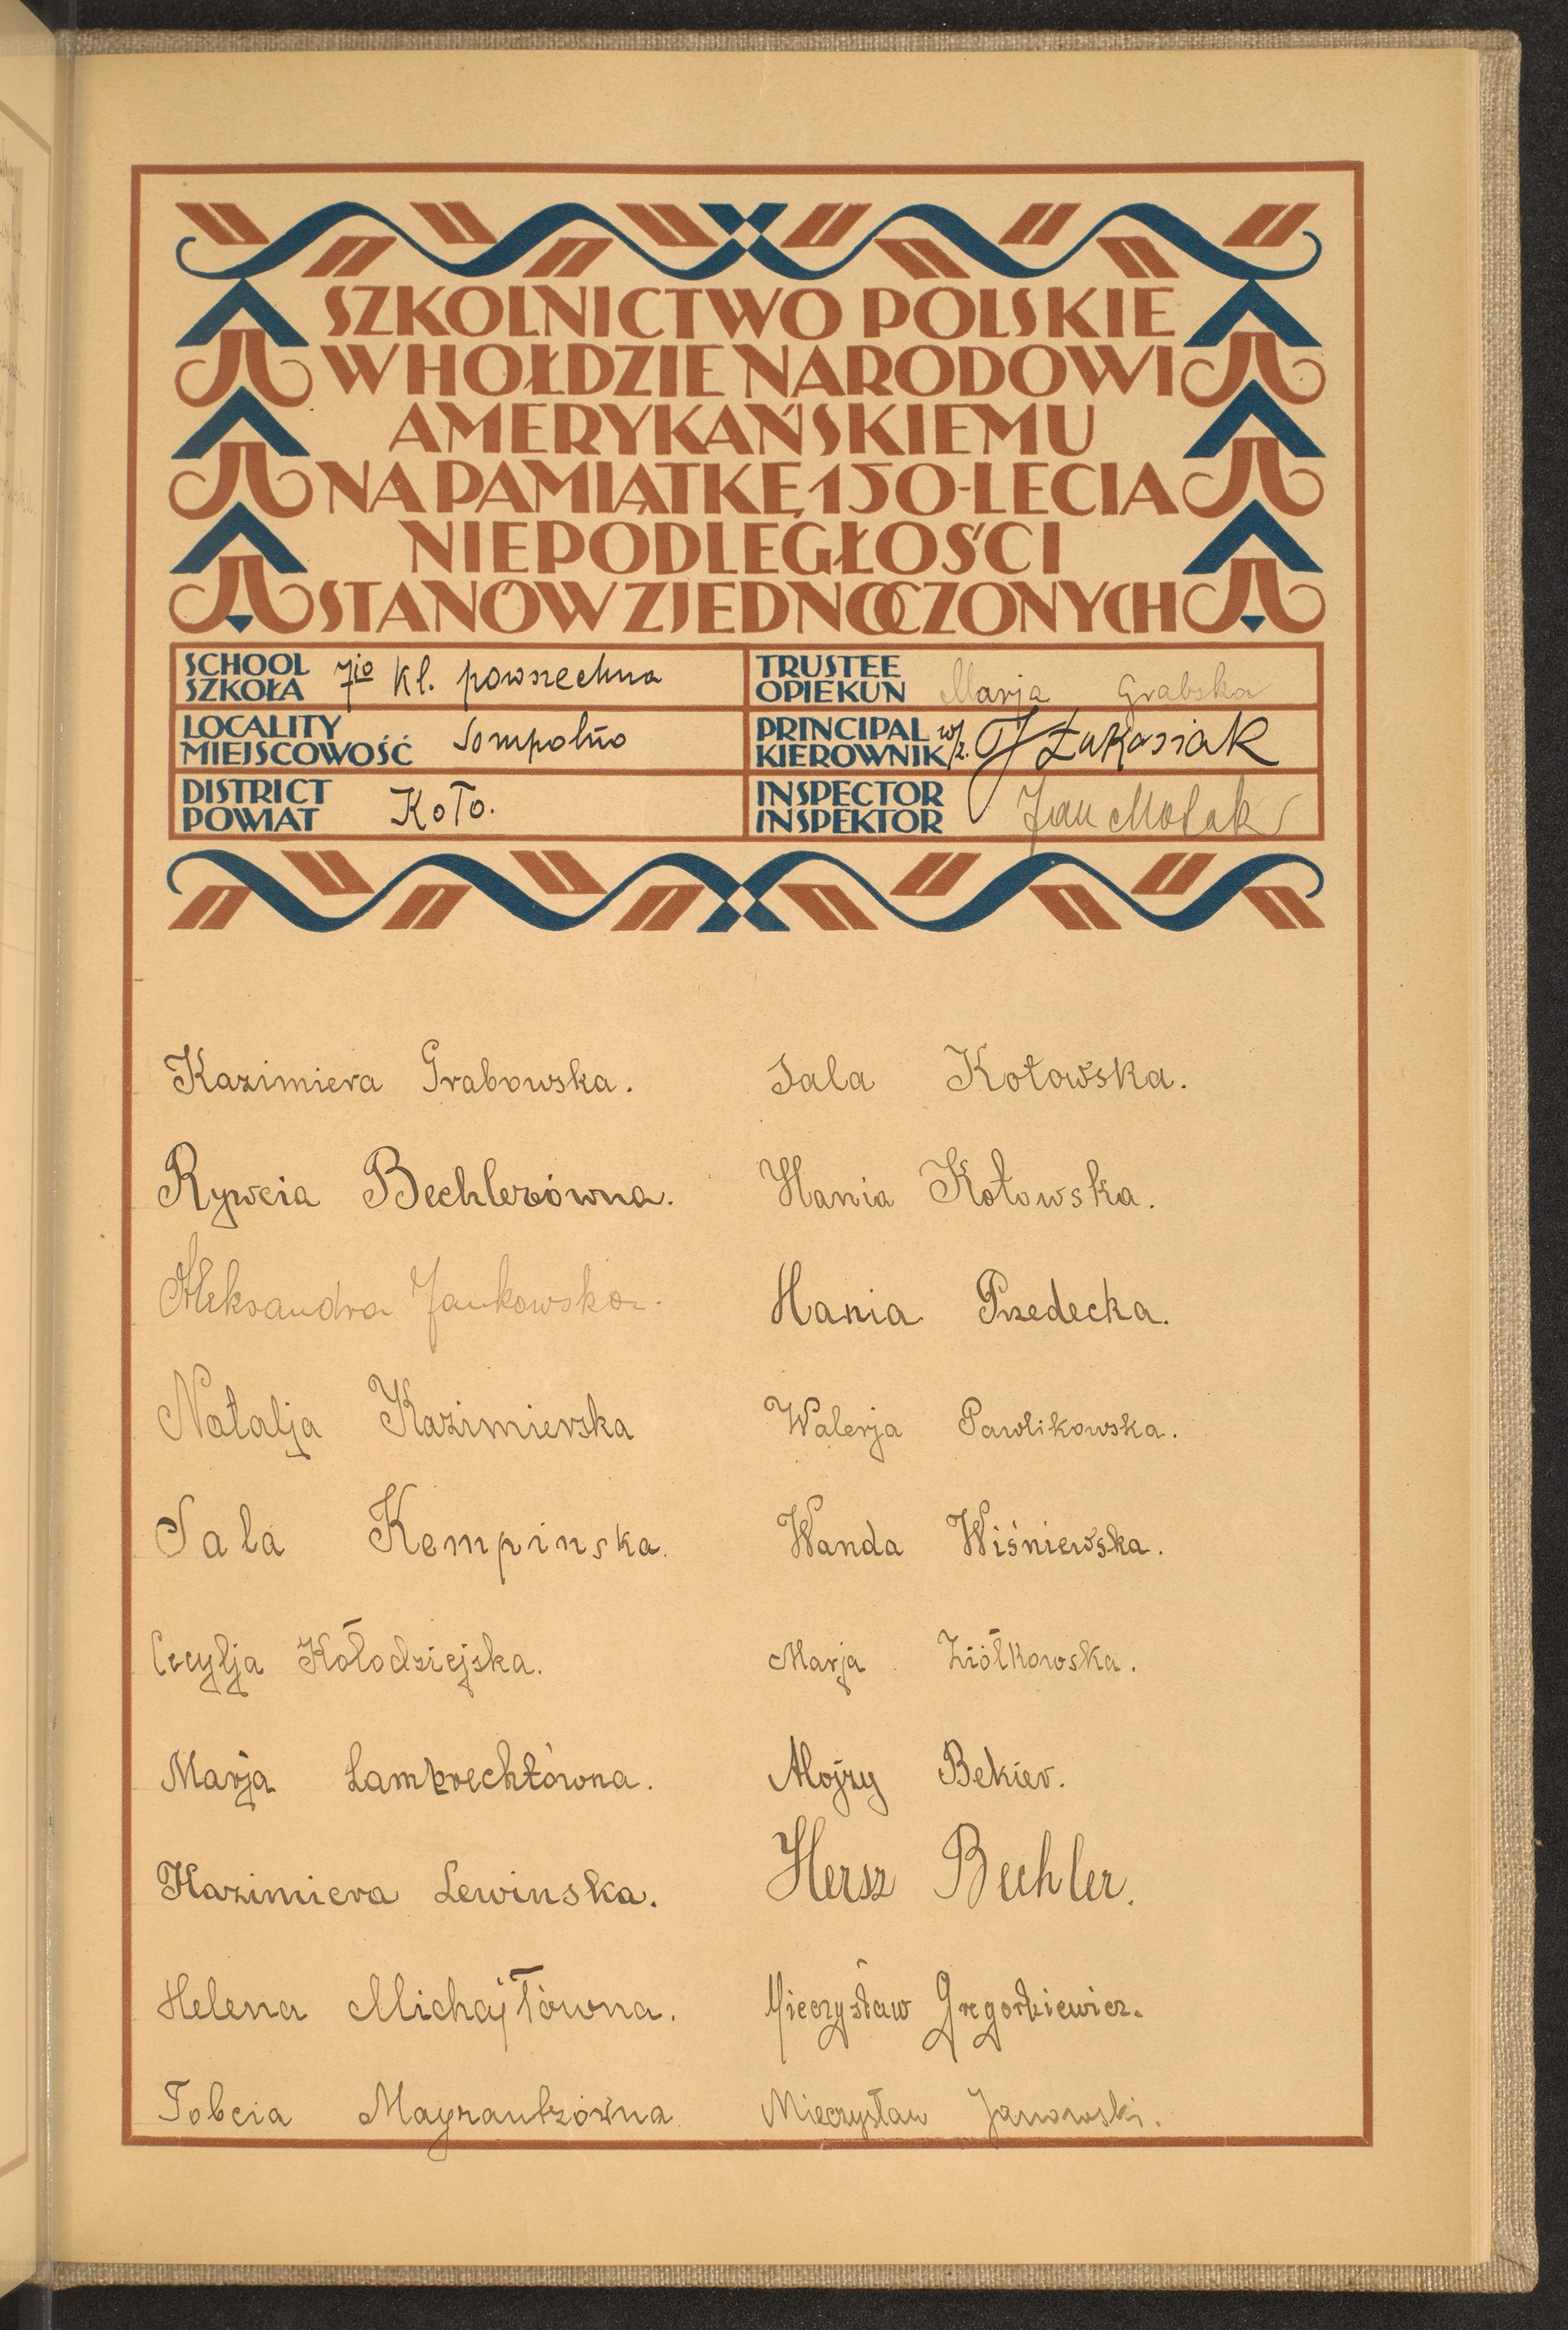 SZKOLNICTWO POLSKIE
W HOŁDZIE NARODOWI
AMERYKAŃSKIEMU
NA PAMIĄTKĘ 150-LECIA
NIEPODLEGŁOŚCI
STANÓW ZJEDNOCZONYCH
SCHOOL
SZKOŁA 7io kl. powszechna
TRUSTEE
OPIEKUN Marja Grabska
LOCALITY
MIEJSCOWOŚĆ Sompolno
PRINCIPAL
KIEROWNIK w/z. J Łukasiak
DISTRICT
POWIAT Koło.
INSPECTOR
INSPEKTOR Jan Molak
Kazimiera Grabowska.
Rywcia Bechlerówna.
Aleksandra Jankowska.
Natalja Kazimierska
Sala Kempinska.
Cecylja Kołodziejska.
Marja Lambrechtówna.
Kazimiera Lewinska.
Helena Michajłówna.
Tobcia Mayrantzówna
Sala Kotowska.
Hania Kotowska.
Hania Przedecka.
Walerja Pawlikowska.
Wanda Wiśniewska.
Marja Ziółkowska.
Alojzy Bekier.
Hersz Bechler.
Mieczysław Gregorkiewicz.
Mieczysław Janowski.